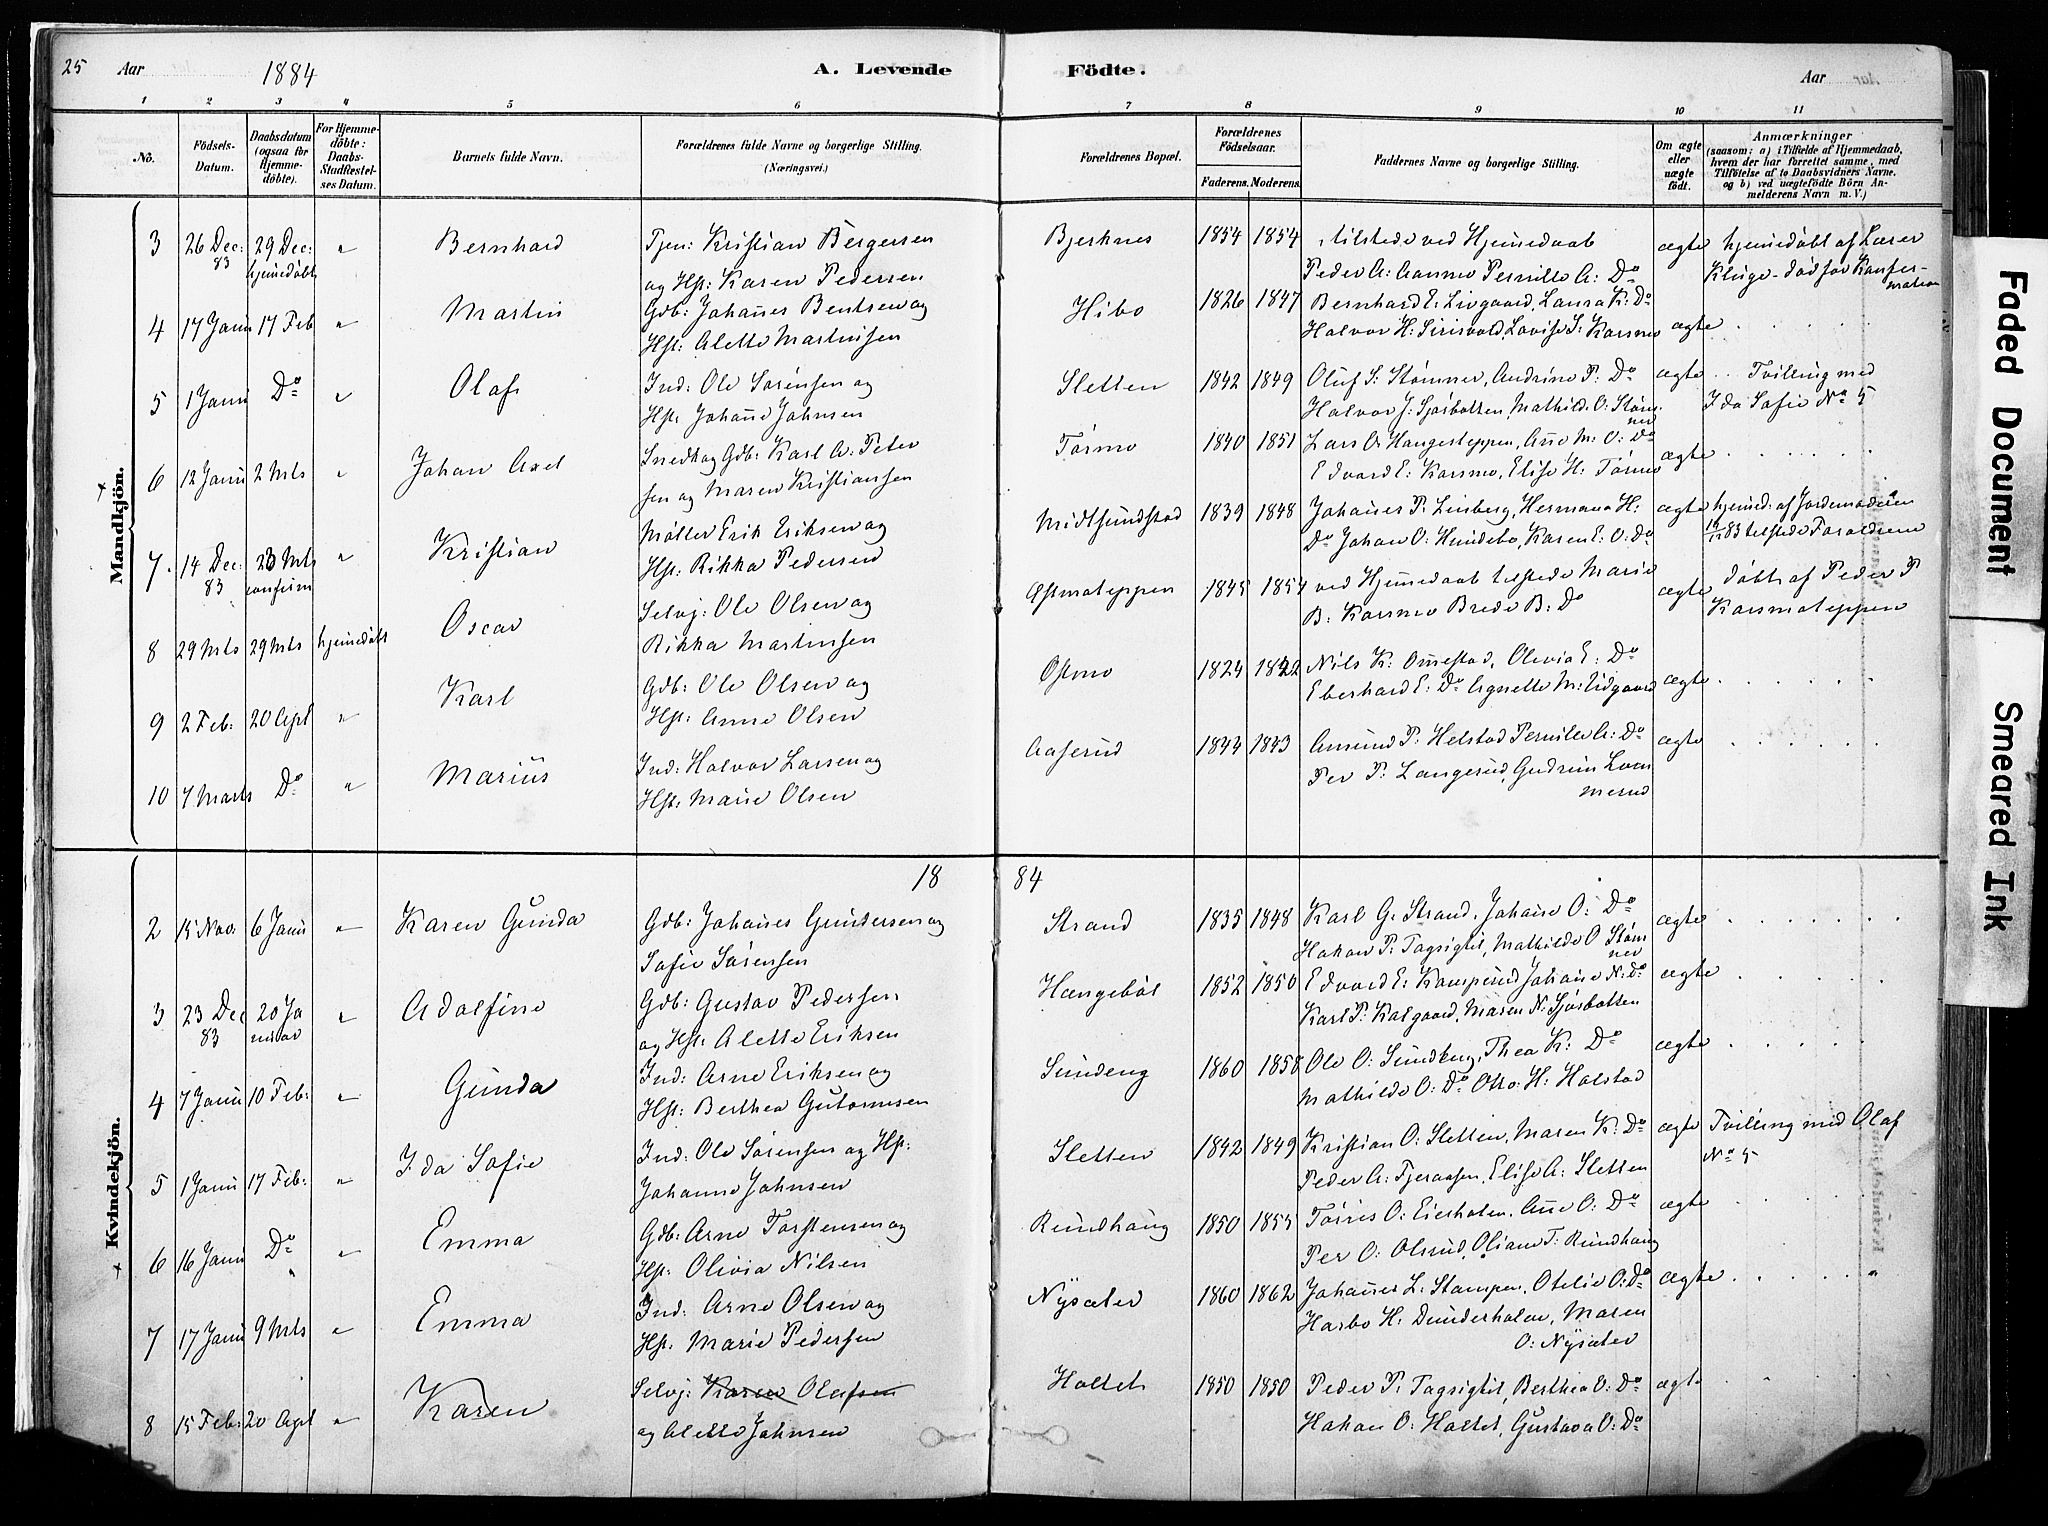 25 Aar 1884 A. Levende Födte. Aar
1 2 3 4 5 6 7 8 9 10 11
No.
Födsels-Datum.
Daabsdatum (ogsaa for Hjemme-döbte).
For Hjemme-döbte: Daabs-Stadfæstel-ses Datum.
Barnets fulde Navn.
Forældrenes fulde Navne og borgerlige Stilling.
(Næringsvei.)
Forældrenes Bopæl.
Forældrenes Födselsaar.
Faderens. Moderens.
Faddernes Navne og borgerlige Stilling.
Om ægte eller uægte födt.
Anmærkninger
(saasom: a) i Tilfælde af Hjemmedaab, hvem der har forrettet samme, med Tilföielse af to Daabsvidners Navne. og b) ved uægtefödte Börn An-melderens Navn m. V.)
Mandkjön.
3 26 Dec: 29 Dec: " Bernhard Tjen: Kristian Bergersen Bjerknes 1854 1854 Tilstede ved Hjemmedaab ægte hjemmedøbt af Lærer
83 hjemedøbt og Hst: Karen Pedersen Peder A: Aanmo Pernille A: Do Kluge - død før Konfir-
mation
4 17 Janu 17 Feb " Martin Gdb: Johannes Bentsen og Hibo 1826 1847 Bernhard E: Livgaard, Laura K: Do
Hst: Alette Martinsen Halvor H: Sirisvold, Lovise S: Karsmo ægte
5 1 Janu Do " Olaf Ind: Ole Sørensen og Sletten 1842 1849 Oluf S: Stømner, Andrine P: Do ægte Tvilling med
Hst: Johanne Johnsen Halvor J: Sjøsbotten, Mathild. O: Støm- Ida Sofie No 5
ner
6 12 Janu 2 Mts " Johan Axel Snedk og Gdb: Karl A: Peter Tørmo 1840 1851 Lars O: Haugesteppen, Anne M: O: Do
sen og Maren Kristiansen Edvard E: Karsmo, Elise H: Tørmo ægte
7. 14 Dec: 23 Mts " Kristian Møller Erik Eriksen og Midtsundstad 1839 1848 Johannes P: Linberg, Hermana H: ægte hjemmed: af Jordemoderen
83 Hst: Rikka Pedersen Do Johan O: Hundebo, Karen E: O: Do 19/12 83 tilstede Forældrene
8 29 Mts 29 Mts hjemmedøbt Oscar Selvj: Ole Olsen og 1845 1854 ved Hjemmedaab tilstede Marie ægte døbt af Peder P
Rikka Martinsen B: Karsmo Brede B: Do Karsmoteppen
9 2 Feb: 20 Apl " Karl Gdb: Ole Olsen og Ostmo 1824 1842 Nils K: Ommestad, Olivia E: Do
Hst: Anne Olsen Eberhard E: Do Agnette M: Lidgaard ægte
10 7 Marts Do " Marius Ind: Halvor Larsen og Aaserud 1844 1843 Amund P: Helstad Pernille A: Do ægte
Hst: Marie Olsen Per P: Langerud, Gudrun Lom
merud
Kvindekjön.
18 84
2 15 Nov: 6 Janu " Karen Gunda Gdb: Johannes Gundersen og Strand 1835 1848 Karl G: Strand, Johanne O: Do ægte
Sofie Sørensen Hakon P: Tagsigtet, Mathilde O Støm
ner
3 23 Dec 20 Ja " Adolfine Gdb: Gustav Pedersen Hængebøl 1852 1850 Edvard E: Kamperud Johanne N: Do ægte
83 nuar og Hst: Alette Eriksen Karl P: Kalgaard, Maren N: Sjøsbotten
4 7 Janu 10 Feb: " Gunda Ind: Arne Eriksen og Sundeng 1860 1858 Ole O: Sundberg, Thea K: Do ægte
Hst: Berthea Gutormsen Mathilde O: Do Otto: H: Halstad
5 1 Janu 17 Feb: " Ida Sofie Ind: Ole Sørensen og Hst: Sletten 1842 1849 Kristian O: Sletten, Maren K: Do ægte Tvilling med Olaf
Johanne Johnsen Peder A: Fjeraasen, Elise A: Sletten No 5
6 16 Janu Do " Emma Gdb: Arne Torstensen og Rundhaug 1850 1855 Tørris O: Eierholen, Anne O: Do ægte
Hst: Olivia Nilsen Per O: Olsrud, Oliane T: Rundhaug
7 17 Janu 9 Mts " Emma Ind: Arne Olsen og Nysæter 1860 1862 Johannes L: Stampen, Otelie O: Do ægte
Hst: Marie Pedersen Harbo H: Dunderholen, Maren
O: Nysæter
8 15 Feb: 20 Apl " Karen Selvj: Karen Olafsen Holtet 1850 1850 Peder P: Tagsigtet, Berthea O: Do ægte
og Alette Johnsen Hakon O: Holtet, Gustava O: Do
Faded Document
Smeared Ink